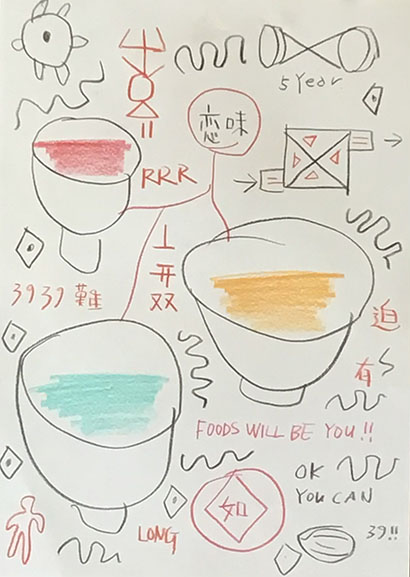 5 Year
恋味
RRR
上
开
双
3939 難
迫
有
FOODS WILL BE YOU!!
如
OK
YOU CAN
LONG
39!!